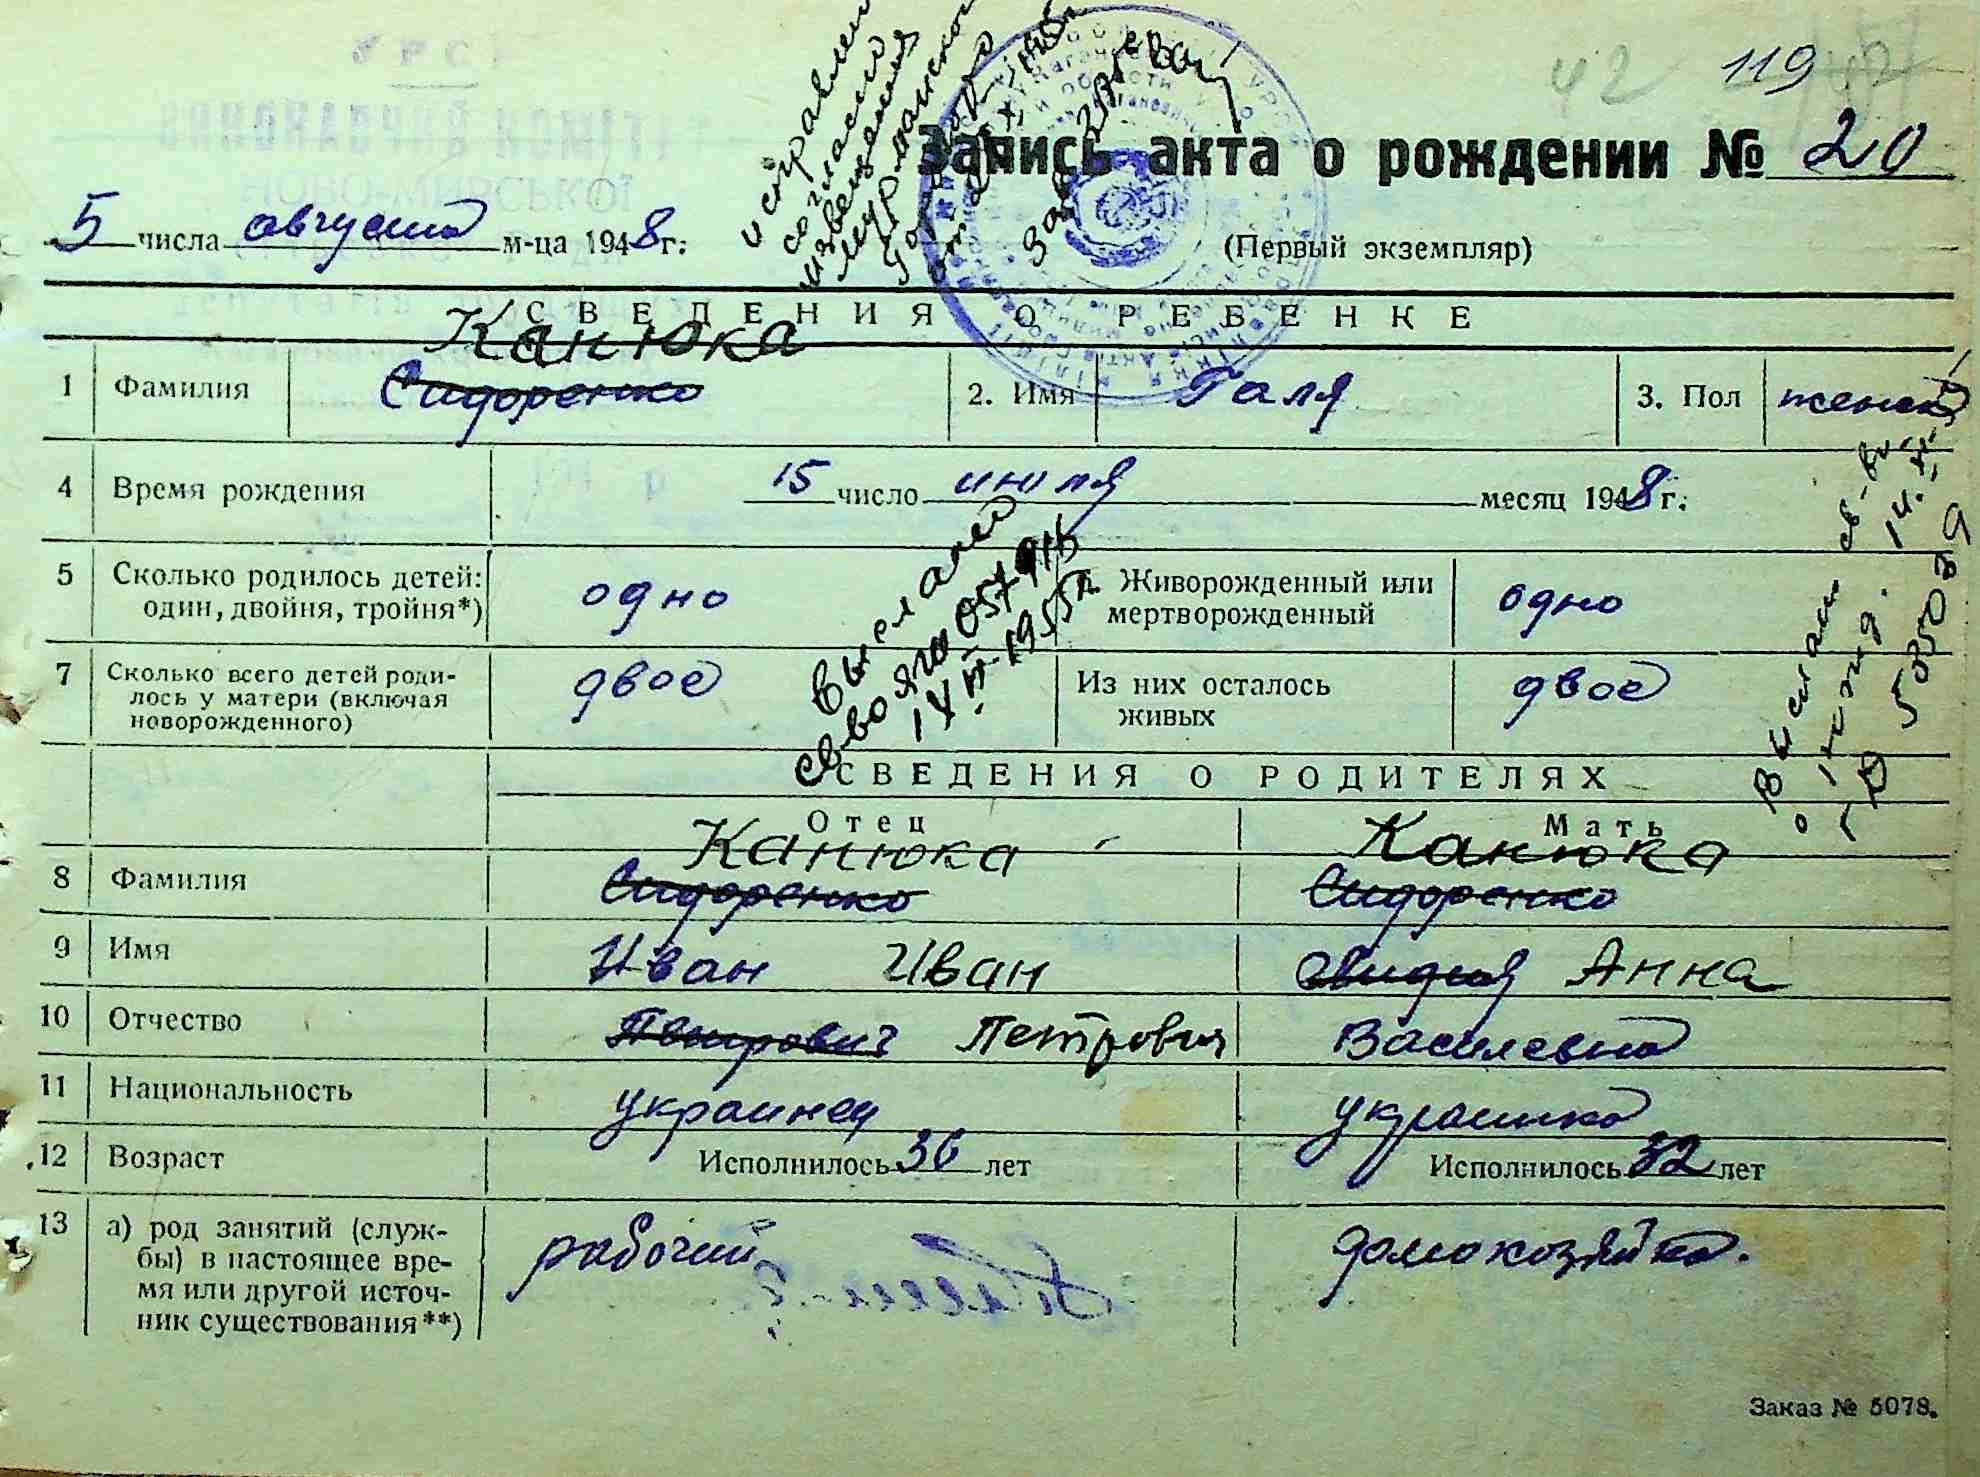 119
42
Запись акта о рождении № 20
5 числа августа м-ца 1948 г.
(Первый экземпляр)
исправлено
согласно
извещения
Мурманского
СВЕДЕНИЯ О РЕБЕНКЕ
Канюка
1 Фамилия Сидоренко 2. Имя Галя 3. Пол женск
4 Время рождения 15 число июля месяц 1948 г.
5 Сколько родилось детей: один, двойня, тройня*) одно
Живорожденный или мертворожденный одно
7 Сколько всего детей родилось у матери (включая новорожденного) двое
Из них осталось живых двое
св-во ЯГ 057915
1955
535039
СВЕДЕНИЯ О РОДИТЕЛЯХ
Отец Мать
Канюка Канюка
8 Фамилия Сидоренко Сидоренко
9 Имя Иван Иван Лидия Анна
10 Отчество Петрович Петрович Василевна
11 Национальность украинец украинка
12 Возраст Исполнилось 36 лет Исполнилось 32 лет
13 а) род занятий (службы) в настоящее время или другой источник существования**) рабочий домохозяйка.
Заказ № 5078.